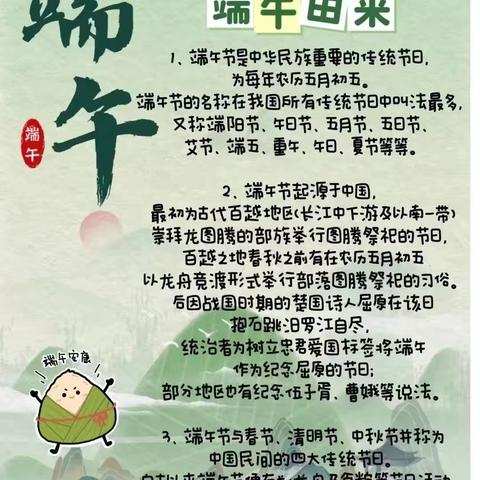 端午
端午
端午由来
1、端午节是中华民族重要的传统节日,
为每年农历五月初五。
端午节的名称在我国所有传统节日中叫法最多,
又称端阳节、午日节、五月节、五日节、
艾节、端五、重午、午日、夏节等等。
2、端午节起源于中国,
最初为古代百越地区(长江中下游及以南一带)
崇拜龙图腾的部族举行图腾祭祀的节日,
百越之地春秋之前有在农历五月初五
以龙舟竞渡形式举行部落图腾祭祀的习俗。
后因战国时期的楚国诗人屈原在该日
抱石跳汨罗江自尽,
统治者为树立忠君爱国标签将端午
作为纪念屈原的节日;
部分地区也有纪念伍子胥、曹娥等说法。
端午安康
3、端午节与春节、清明节、中秋节并称为
中国民间的四大传统节日。